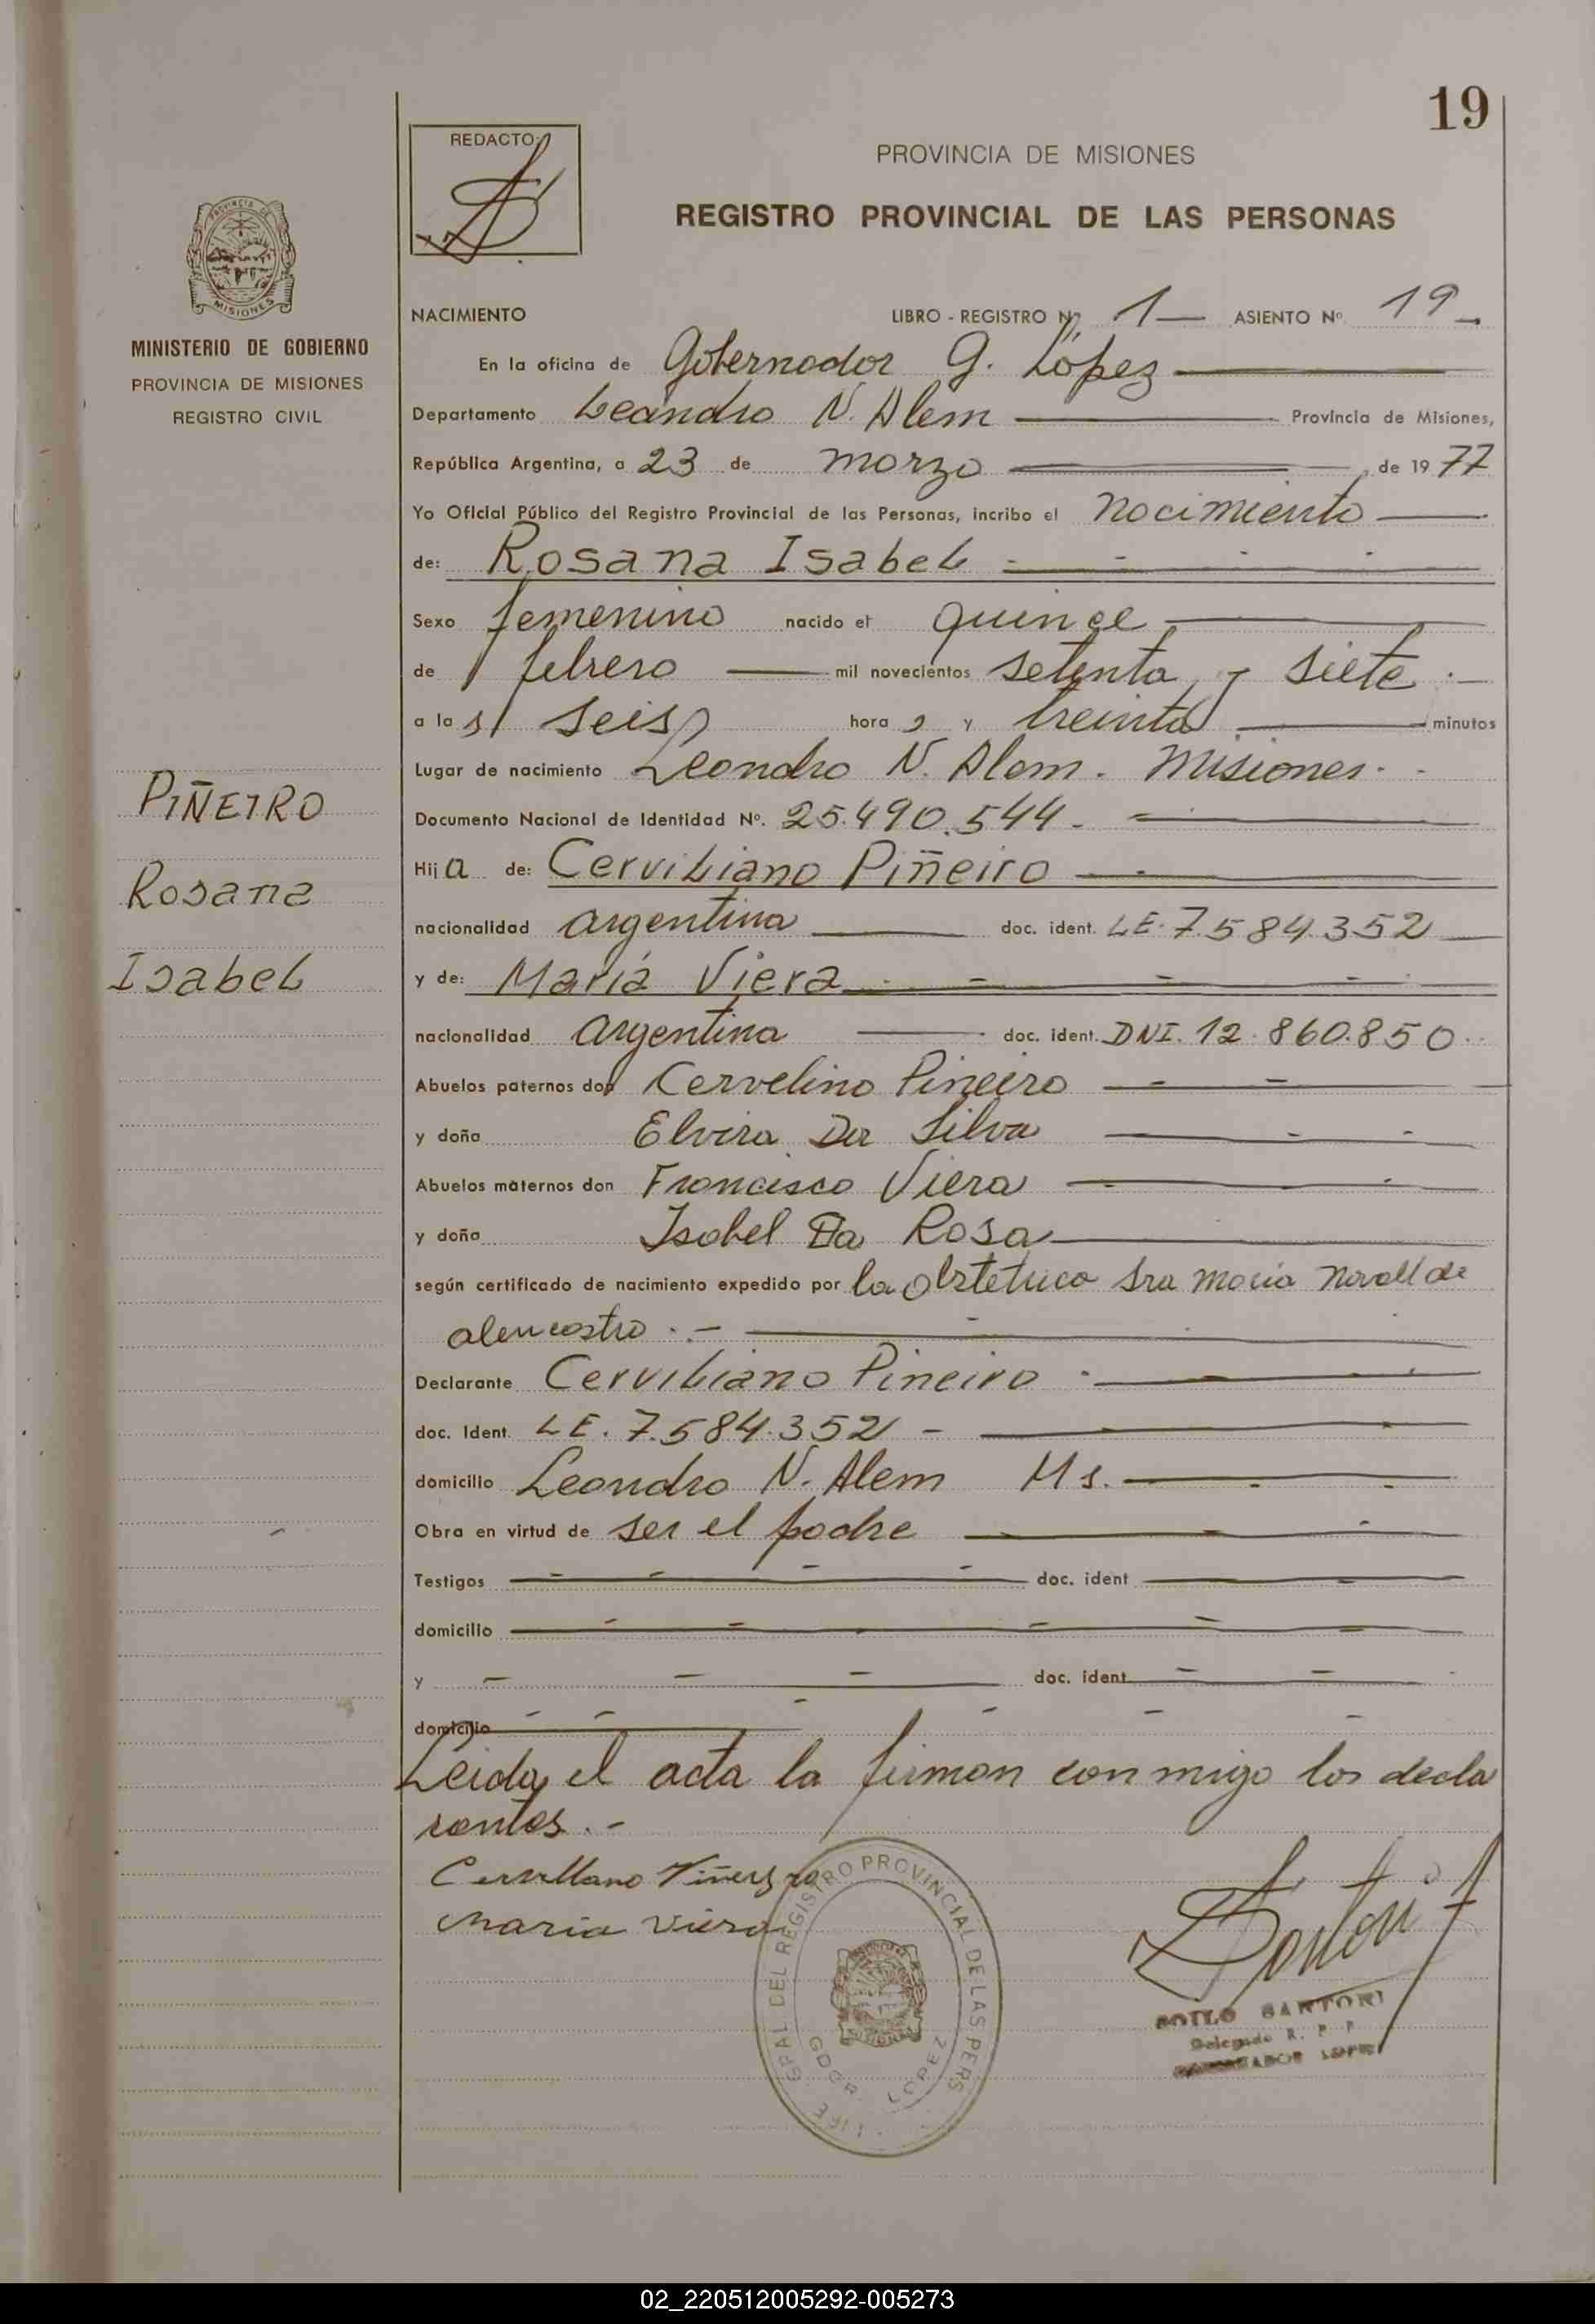 19
REDACTO:
PROVINCIA DE MISIONES
REGISTRO PROVINCIAL DE LAS PERSONAS
PROVINCIA DE
MISIONES
MINISTERIO DE GOBIERNO
PROVINCIA DE MISIONES
REGISTRO CIVIL
NACIMIENTO LIBRO - REGISTRO Nº 1 ASIENTO Nº 19
En la oficina de Gobernador G. López
Departamento Leandro N. Alem Provincia de Misiones,
República Argentina, a 23 de marzo de 1977
Yo Oficial Público del Registro Provincial de las Personas, incribo el nacimiento
de: Rosana Isabel
Sexo femenino nacido el quince
de febrero mil novecientos setenta y siete
a las seis horas y treinta minutos
Lugar de nacimiento Leandro N. Alem. Misiones.
Documento Nacional de Identidad Nº. 25.490.544
Hija de: Cerviliano Piñeiro
nacionalidad argentina doc. ident. LE. 7.584.352
y de: María Viera
nacionalidad argentina doc. ident. DNI. 12.860.850
Abuelos paternos don Cervelino Pineiro
y doña Elvira Da Silva
Abuelos maternos don Francisco Viera
y doña Isabel Da Rosa
según certificado de nacimiento expedido por la obstetrica Sra Maria de
alencastro.-
Declarante Cerviliano Pineiro
doc. Ident. LE. 7.584.352 -
domicilio Leandro N. Alem Ms.
Obra en virtud de ser el padre
Testigos doc. ident
domicilio
y doc. ident
domicilio
Leida el acta la firman conmigo los decla
rantes.-
PIÑEIRO
Rosana
Isabel
Maria Viera
GRAL DEL REGISTRO PROVINCIAL DE LAS PERS
GDOR. LOPEZ
MISIONES
SARTORI
Delegado R. P. P.
GOBERNADOR LOPEZ
02_220512005292-005273